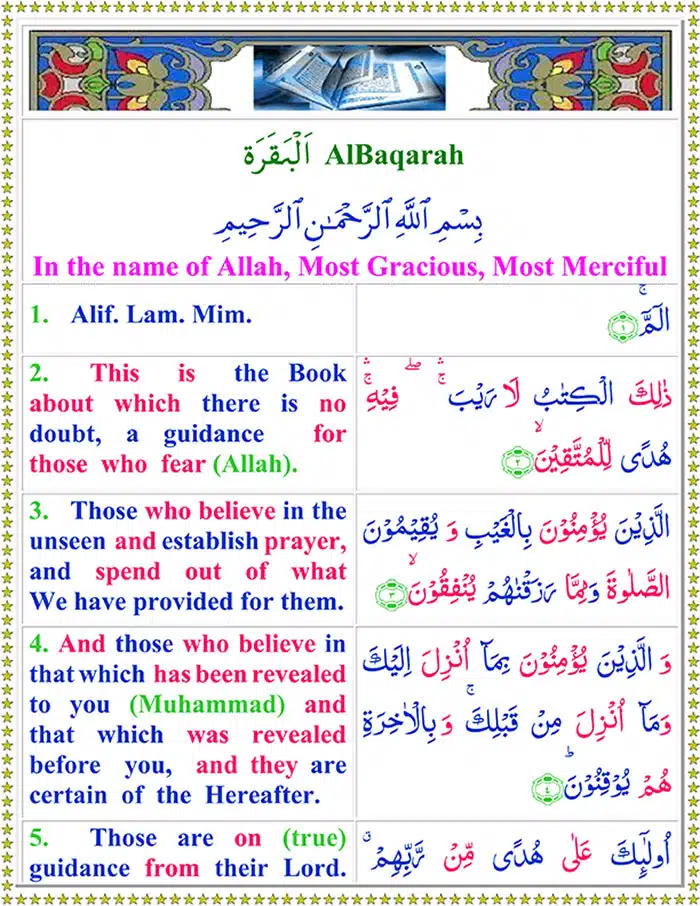 اَلْبَقَرَة AlBaqarah
بِسْمِ ٱللَّهِ ٱلرَّحْمَـٰنِ ٱلرَّحِيمِ
In the name of Allah, Most Gracious, Most Merciful
1. Alif. Lam. Mim.
الٓمّٓ ۚ ﴿١﴾
2. This is the Book
about which there is no
doubt, a guidance for
those who fear (Allah).
ذٰلِكَ الْكِتٰبُ لَا رَيْبَ ۛۚ ۖ فِيْهِ ۛۚ
هُدًى لِّلْمُتَّقِيْنَ ۙ ﴿٢﴾
3. Those who believe in the
unseen and establish prayer,
and spend out of what
We have provided for them.
الَّذِيْنَ يُؤْمِنُوْنَ بِالْغَيْبِ وَ يُقِيْمُوْنَ
الصَّلٰوةَ وَمِمَّا رَزَقْنٰهُمْ يُنْفِقُوْنَ ۙ ﴿٣﴾
4. And those who believe in
that which has been revealed
to you (Muhammad) and
that which was revealed
before you, and they are
certain of the Hereafter.
وَ الَّذِيْنَ يُؤْمِنُوْنَ بِمَآ اُنْزِلَ اِلَيْكَ
وَمَآ اُنْزِلَ مِنْ قَبْلِكَ ۚ وَبِالْاٰخِرَةِ
هُمْ يُوْقِنُوْنَ ؕ ﴿٤﴾
5. Those are on (true)
guidance from their Lord.
اُولٰٓئِكَ عَلٰى هُدًى مِّنْ رَّبِّهِمْ ۗ